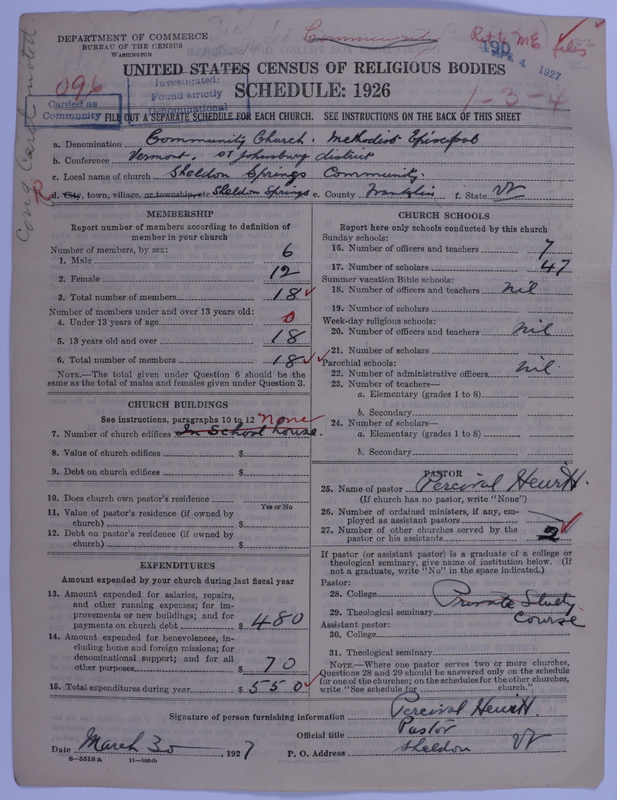 DEPARTMENT OF COMMERCE
BUREAU OF THE CENSUS
WASHINGTON
Community
Ret to ME files
490
4 1927
UNITED STATES CENSUS OF RELIGIOUS BODIES
SCHEDULE: 1926
096
Investigated:
Found strictly
Denominational
1-3-4
Carded as
Community
FILL OUT A SEPARATE SCHEDULE FOR EACH CHURCH. SEE INSTRUCTIONS ON THE BACK OF THIS SHEET
a. Denomination Community Church. Methodist Episcopal
b. Conference Vermont. St Johnsbury district
c. Local name of church Sheldon Springs Community.
R
d. City, town, village, or township, etc Sheldon Springs e. County Franklin f. State Vt
MEMBERSHIP
Report number of members according to definition of
member in your church
Number of members, by sex:
1. Male 6
2. Female 12
3. Total number of members 18
Number of members under and over 13 years old:
4. Under 13 years of age 0
5. 13 years old and over 18
6. Total number of members 18
NOTE.—The total given under Question 6 should be the
same as the total of males and females given under Question 3.
CHURCH BUILDINGS
See instructions, paragraphs 10 to 12 none
7. Number of church edifices In School house.
8. Value of church edifices $
9. Debt on church edifices $
10. Does church own pastor's residence
Yes or No
11. Value of pastor's residence (if owned by
church) $
12. Debt on pastor's residence (if owned by
church) $
EXPENDITURES
Amount expended by your church during last fiscal year
13. Amount expended for salaries, repairs,
and other running expenses; for im-
provements or new buildings; and for
payments on church debt $ 480
14. Amount expended for benevolences, in-
cluding home and foreign missions; for
denominational support; and for all
other purposes $ 70
15. Total expenditures during year $ 550
CHURCH SCHOOLS
Report here only schools conducted by this church
Sunday schools:
16. Number of officers and teachers 7
17. Number of scholars 47
Summer vacation Bible schools:
18. Number of officers and teachers nil
19. Number of scholars
Week-day religious schools:
20. Number of officers and teachers nil
21. Number of scholars
Parochial schools:
22. Number of administrative officers nil
23. Number of teachers—
a. Elementary (grades 1 to 8)
b. Secondary
24. Number of scholars—
a. Elementary (grades 1 to 8)
b. Secondary
PASTOR
25. Name of pastor Percival Hewitt.
(If church has no pastor, write "None")
26. Number of ordained ministers, if any, em-
ployed as assistant pastors
27. Number of other churches served by the
pastor or his assistants 2
If pastor (or assistant pastor) is a graduate of a college or
theological seminary, give name of institution below. (If
not a graduate, write "No" in the space indicated.)
Pastor:
28. College
Private Study
29. Theological seminary Course
Assistant pastor:
30. College
31. Theological seminary
NOTE.—Where one pastor serves two or more churches,
Questions 28 and 29 should be answered only on the schedule
for one of the churches; on the schedules for the other churches,
write "See schedule for church."
Signature of person furnishing information Percival Hewitt.
Official title Pastor
Date March 30, 1927 P. O. Address Sheldon Vt
8—5518a 11—9054b